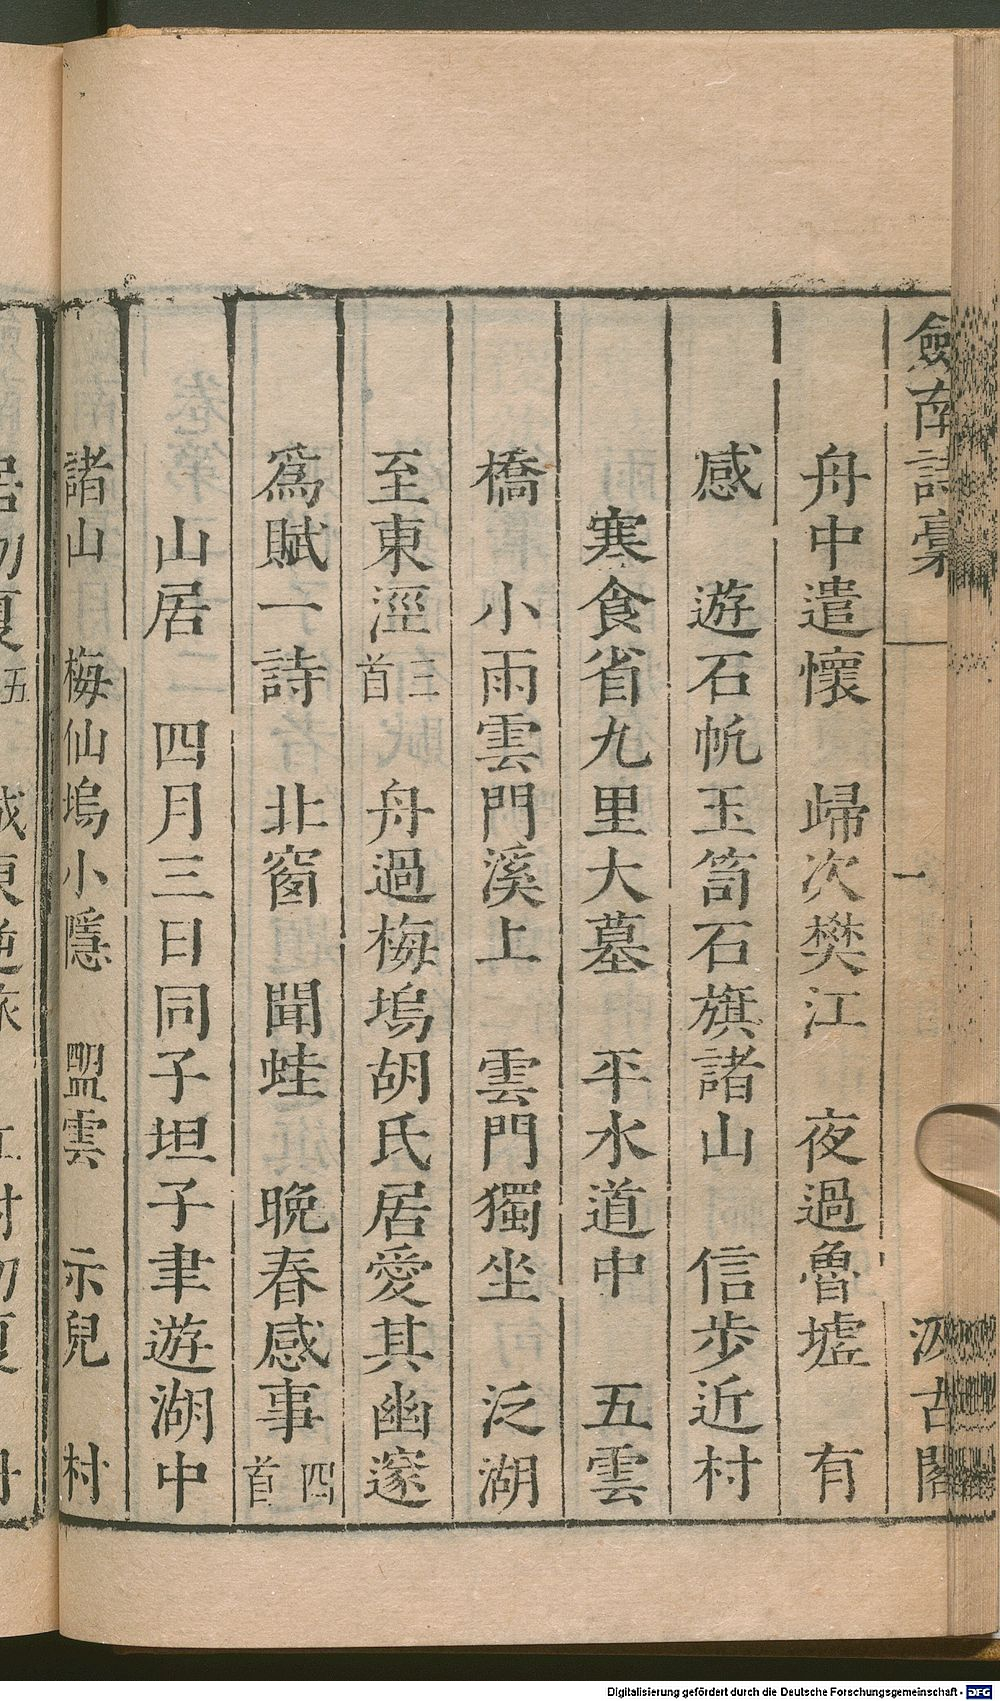 劔南詩稾 一 汲古閣
舟中遣懷 歸次樊江 夜過魯墟 有
感 遊石帆玉笥石旗諸山 信步近村
寒食省九里大墓 平水道中 五雲
橋 小雨雲門溪上 雲門獨坐 泛湖
至東涇三首 舟過梅塢胡氏居愛其幽邃
爲賦一詩 北窗 聞蛙 晚春感事四首
山居 四月三日同子坦子聿遊湖中
諸山 梅仙塢小隱 盟雲 示兒 村
Digitalisierung gefördert durch die Deutsche Forschungsgemeinschaft - DFG